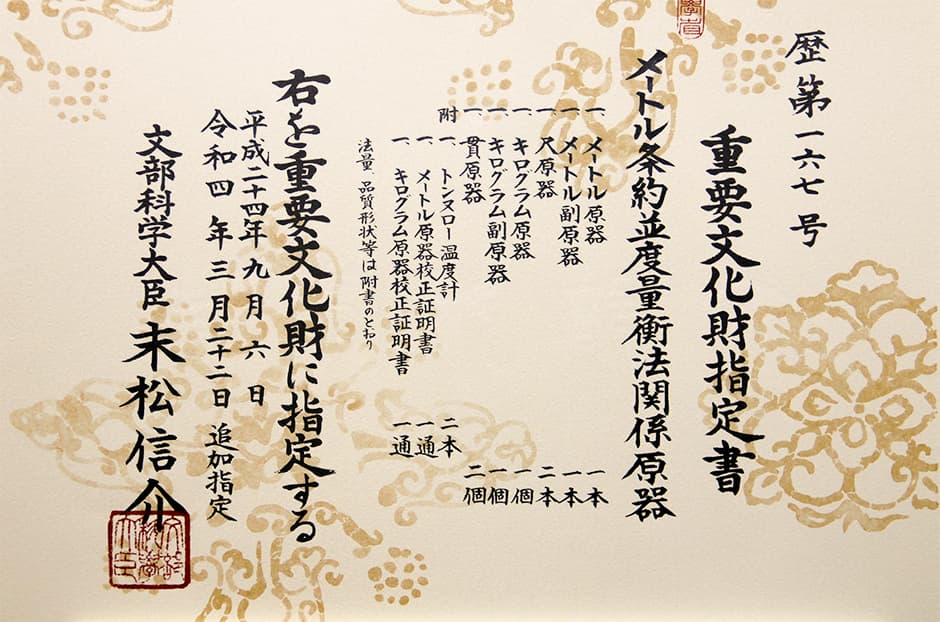 歴第一六七号
重要文化財指定書
メートル条約並度量衡法関係原器
一、メートル原器 一本
一、メートル副原器 一本
一、尺原器 二本
一、キログラム原器 一個
一、キログラム副原器 一個
一、貫原器 二個
附 一、トンヌロー温度計 二本
一、メートル原器校正証明書 一通
一、キログラム原器校正証明書 一通
法量、品質形状等は附書のとおり
右を重要文化財に指定する
平成二十四年九月六日
令和四年三月二十二日 追加指定
文部科学大臣 末松信介